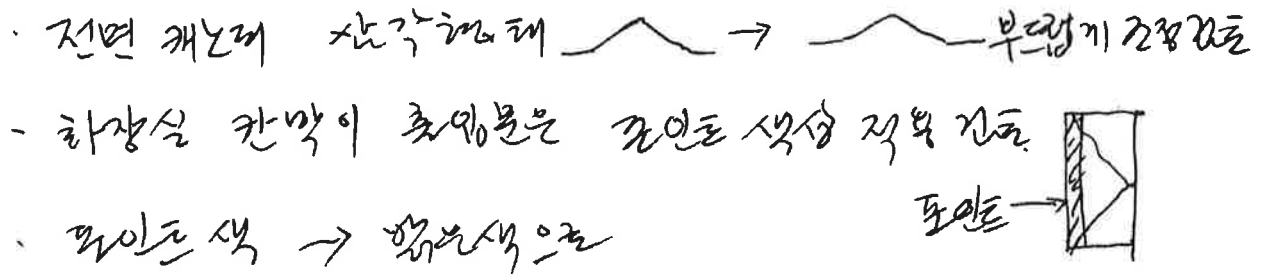 · 전면 캐노피 삼각형태 → 부드럽게 조정검토
- 화장실 칸막이 출입문은 포인트 색상 적용 검토.
포인트 →
· 포인트 색 → 밝은색으로